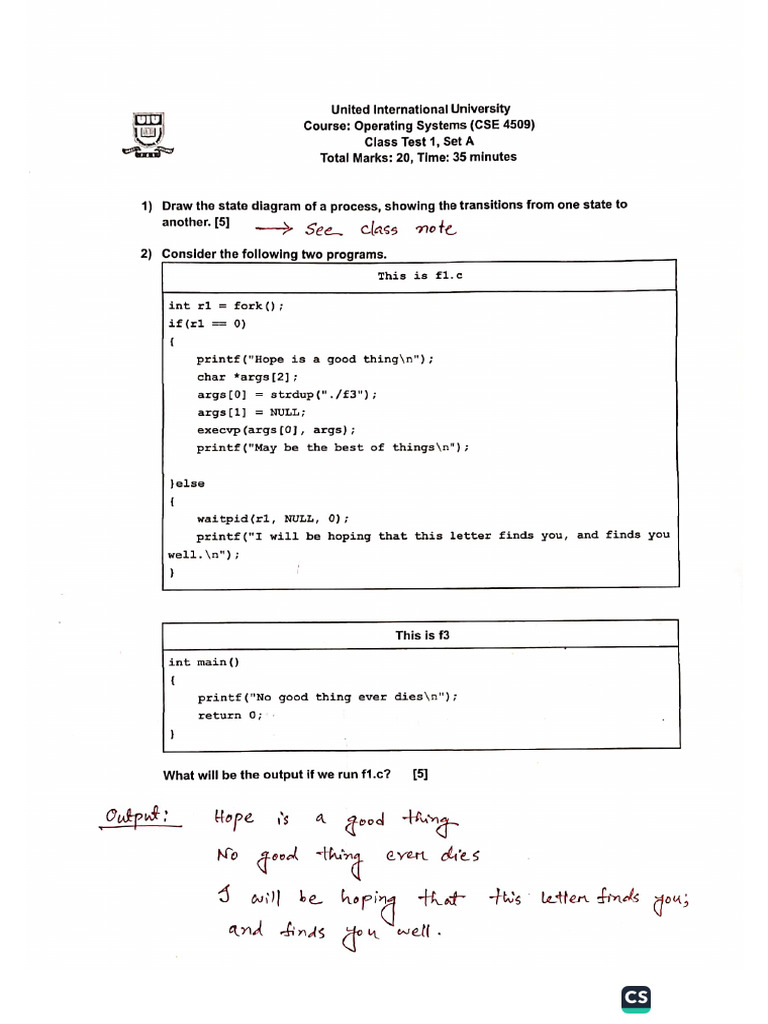 United International University
Course: Operating Systems (CSE 4509)
Class Test 1, Set A
Total Marks: 20, Time: 35 minutes
UIU
1) Draw the state diagram of a process, showing the transitions from one state to
another. [5]
→ See class note
2) Consider the following two programs.
This is f1.c
int r1 = fork();
if(r1 == 0)
{
printf("Hope is a good thing\n");
char *args[2];
args[0] = strdup("./f3");
args[1] = NULL;
execvp(args[0], args);
printf("May be the best of things\n");
}else
{
waitpid(r1, NULL, 0);
printf("I will be hoping that this letter finds you, and finds you
well.\n");
}
This is f3
int main()
{
printf("No good thing ever dies\n");
return 0;
}
What will be the output if we run f1.c? [5]
Output: Hope is a good thing
No good thing ever dies
I will be hoping that this letter finds you,
and finds you well.
CS